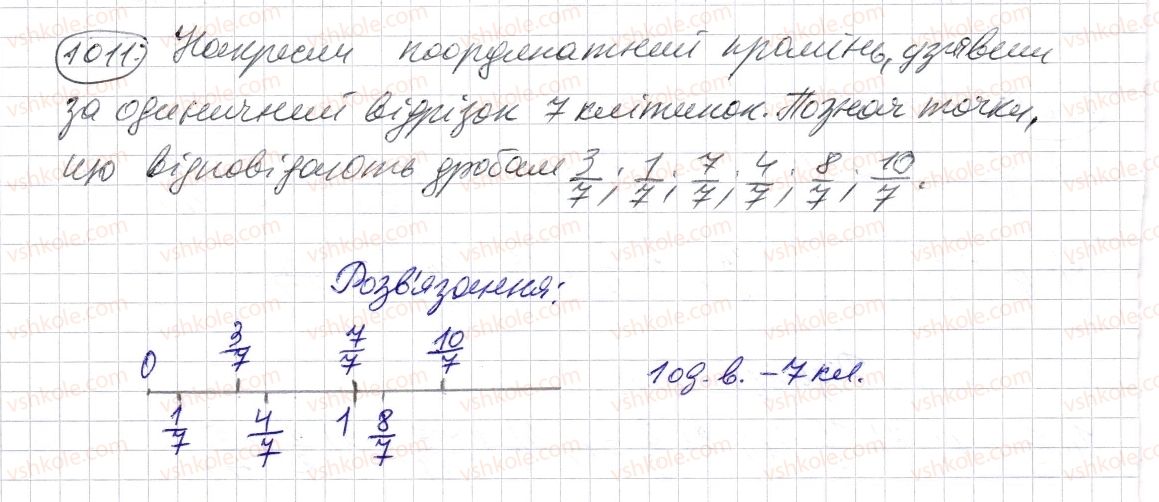 1011. Накресли координатний промінь, узявши
за одиничний відрізок 7 клітинок. Познач точки,
що відповідають дробам 3/7; 1/7; 7/7; 4/7; 8/7; 10/7.
Розв'язання:
0 3/7 7/7 10/7
1 од. в. - 7 кл.
1/7 4/7 1 8/7